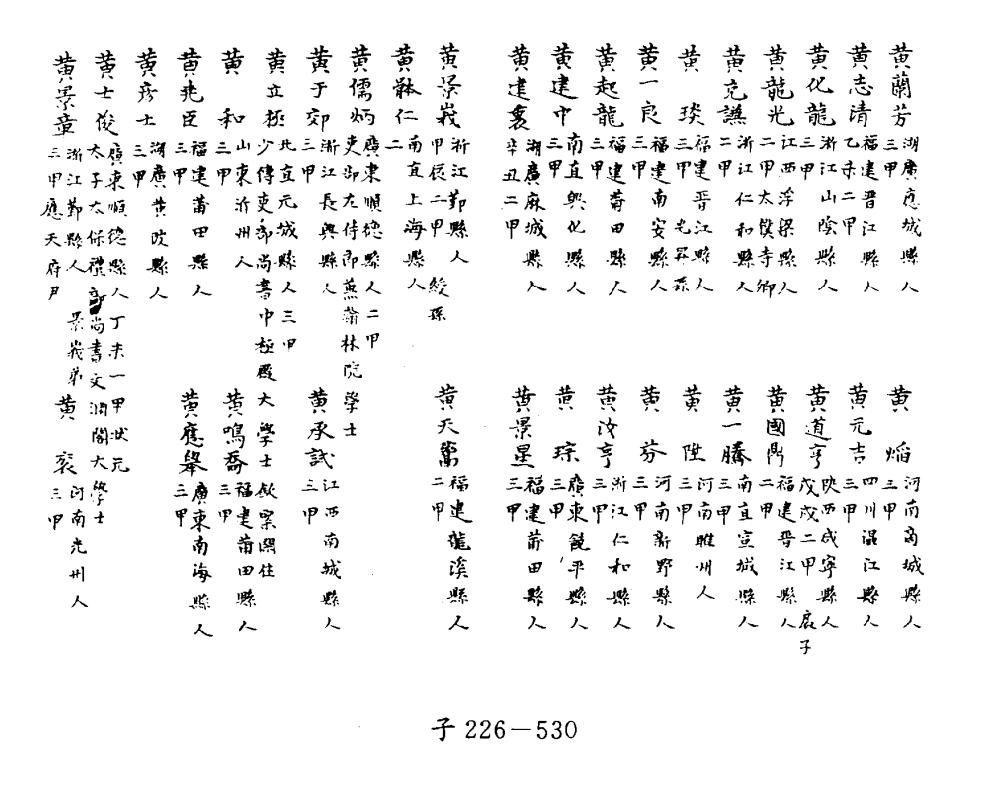 黄蘭芳 湖廣應城縣人 三甲
黄焰 河南商城縣人 三甲
黄志清 福建晉江縣人 乙未二甲
黄元吉 四川温江縣人 三甲
黄化龍 浙江山陰縣人 三甲
黄道亨 陝西咸寧縣人 戊戌二甲 扆子
黄龍光 江西浮梁縣人 二甲太僕寺卿
黄國鼎 福建晉江縣人 二甲
黄克謙 浙江仁和縣人 二甲
黄一騰 南直宣城縣人 三甲
黄琰 福建晉江縣人 三甲 光昇孫
黄陞 河南睢州人 三甲
黄一良 福建南安縣人 三甲
黄芬 河南新野縣人 三甲
黄起龍 福建莆田縣人 三甲
黄汝亨 浙江仁和縣人 三甲
黄建中 南直興化縣人 三甲
黄琮 廣東饒平縣人 三甲
黄建衷 湖廣麻城縣人 辛丑二甲
黄景星 福建莆田縣人 三甲
黄景峩 浙江鄞縣人 甲辰二甲 綬孫
黄天 福建龍溪縣人 二甲
黄體仁 南直上海縣人 二
黄儒炳 廣東順德縣人二甲 吏部左侍郎兼翰林院學士
黄于郊 浙江長興縣人 三甲
黄承試 江西南城縣人 三甲
黄立極 北直元城縣人三甲 少傅吏部尚書中極殿大學士欽案閑住
黄和 山東沂州人 三甲
黄鳴喬 福建莆田縣人 三甲
黄兆臣 福建莆田縣人 三甲
黄應舉 廣東南海縣人 三甲
黄彦士 湖廣黄陂縣人 三甲
黄士俊 廣東順德縣人丁未一甲狀元 太子太保禮部尚書文淵閣大學士
黄景章 浙江鄞縣人 景峩弟 三甲應天府尹
黄衮 河南光州人 三甲
子226—530